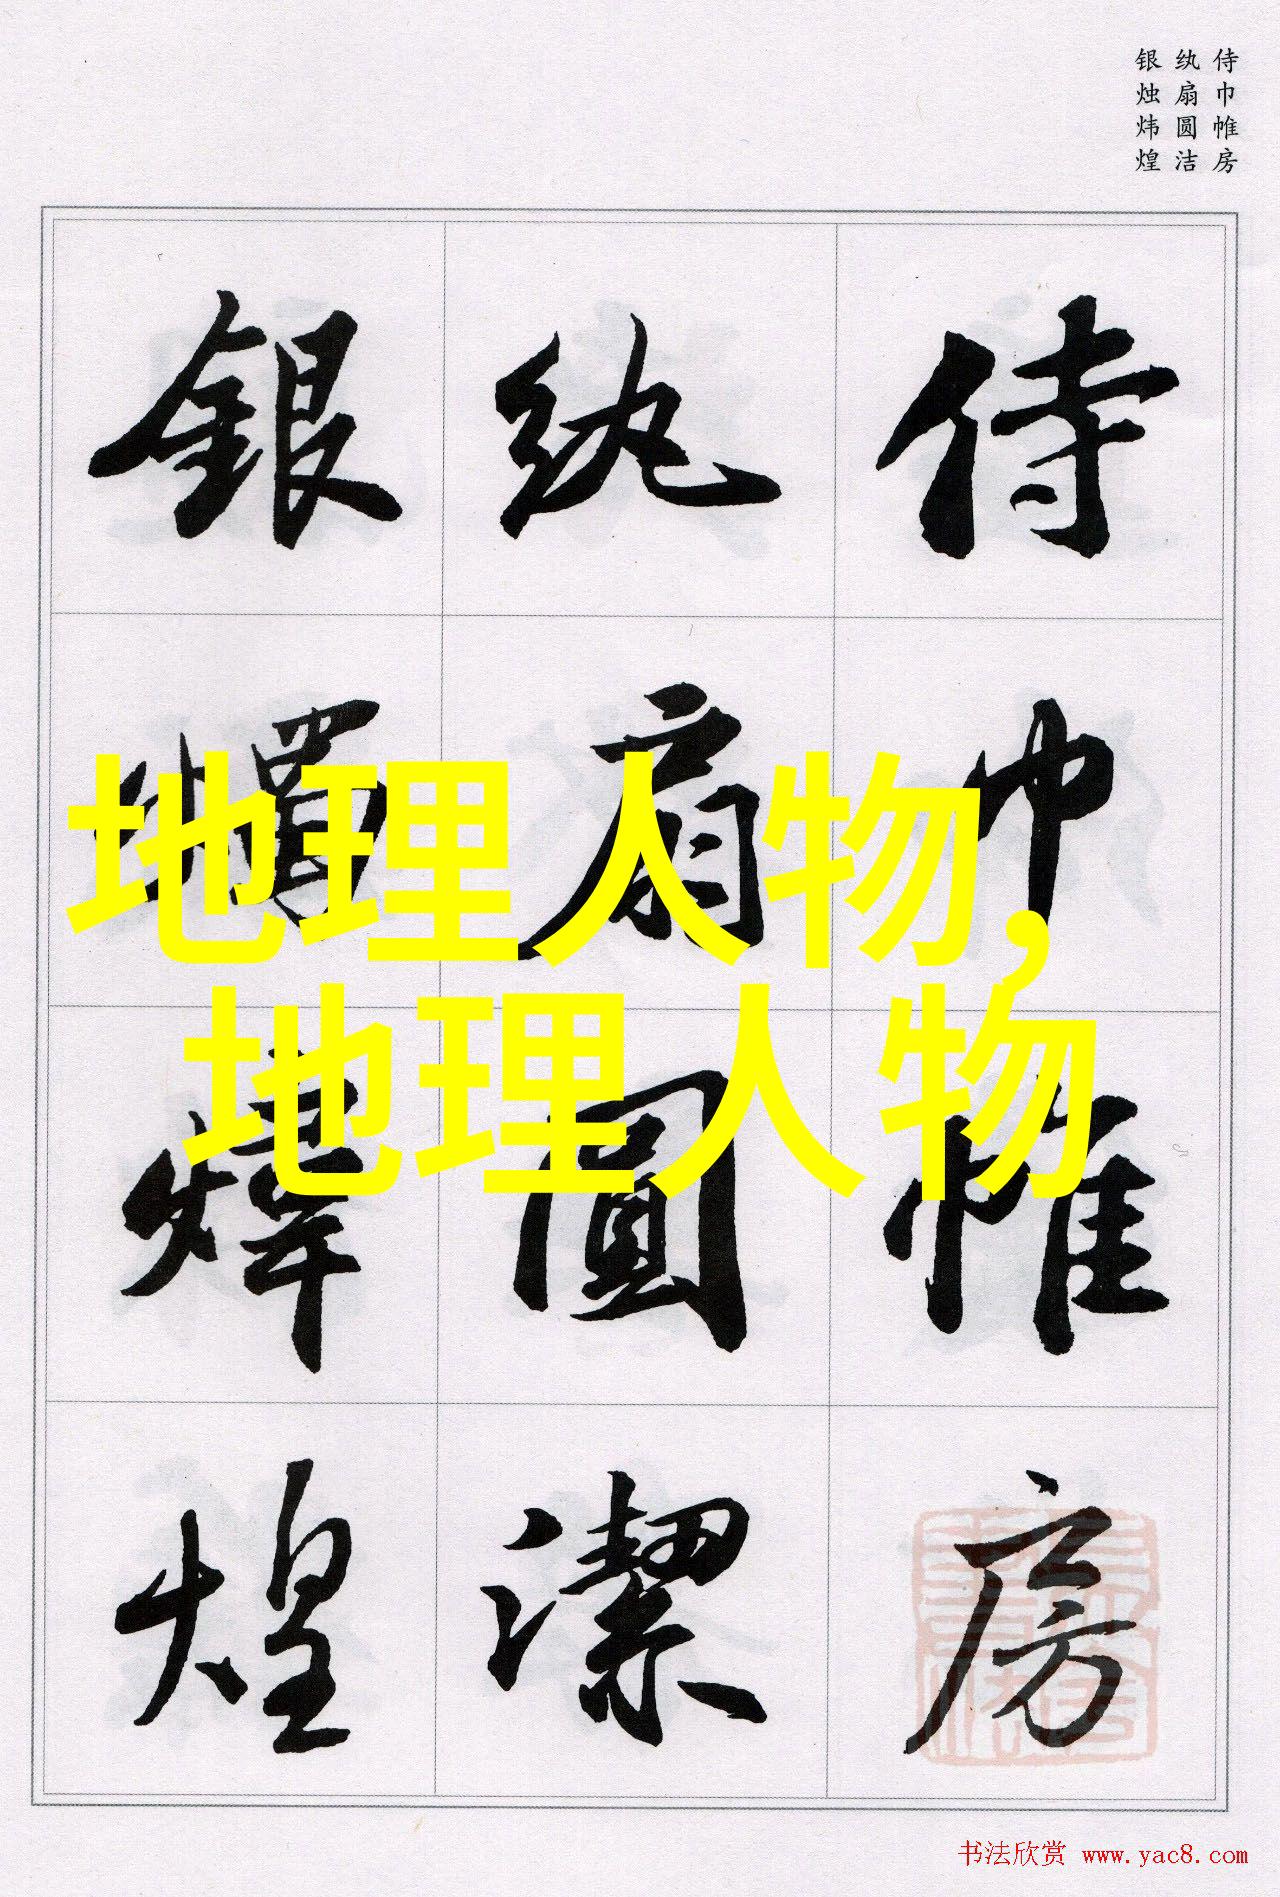 侍巾帷房
纨扇圆洁
银烛炜煌
侍巾帷房
紈扇圓潔
銀燭煒煌
地理人物,
地理人物
书法欣赏 www.yac8.com